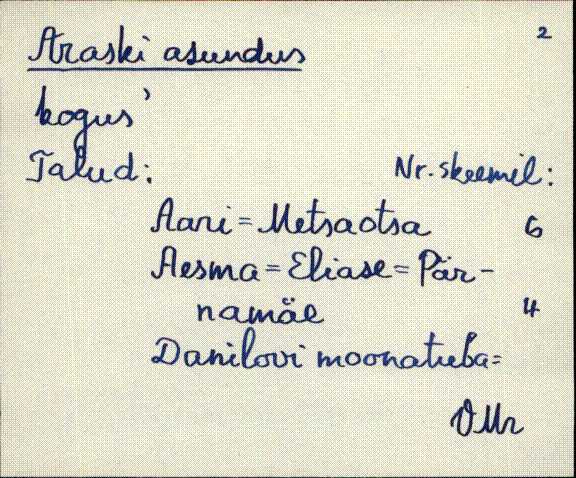 2
Araski asundus
kogus'
Talud: Nr. skeemil:
Aari = Metsaotsa 6
Aesma = Eliase = Pär-
namäe 4
Danilovi moonatuba =